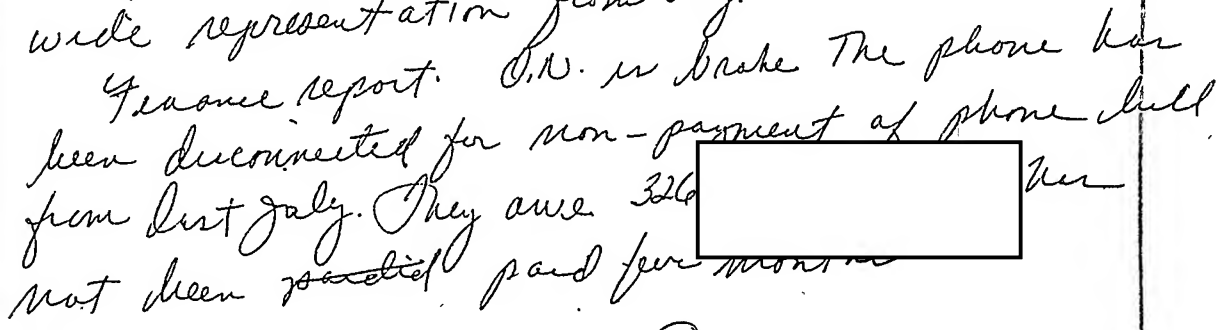 wide representation from
Finance report. O.N. is broke The phone has
been disconnected for non-payment of phone bill
from last July. They owe 326 has
not been paid for months